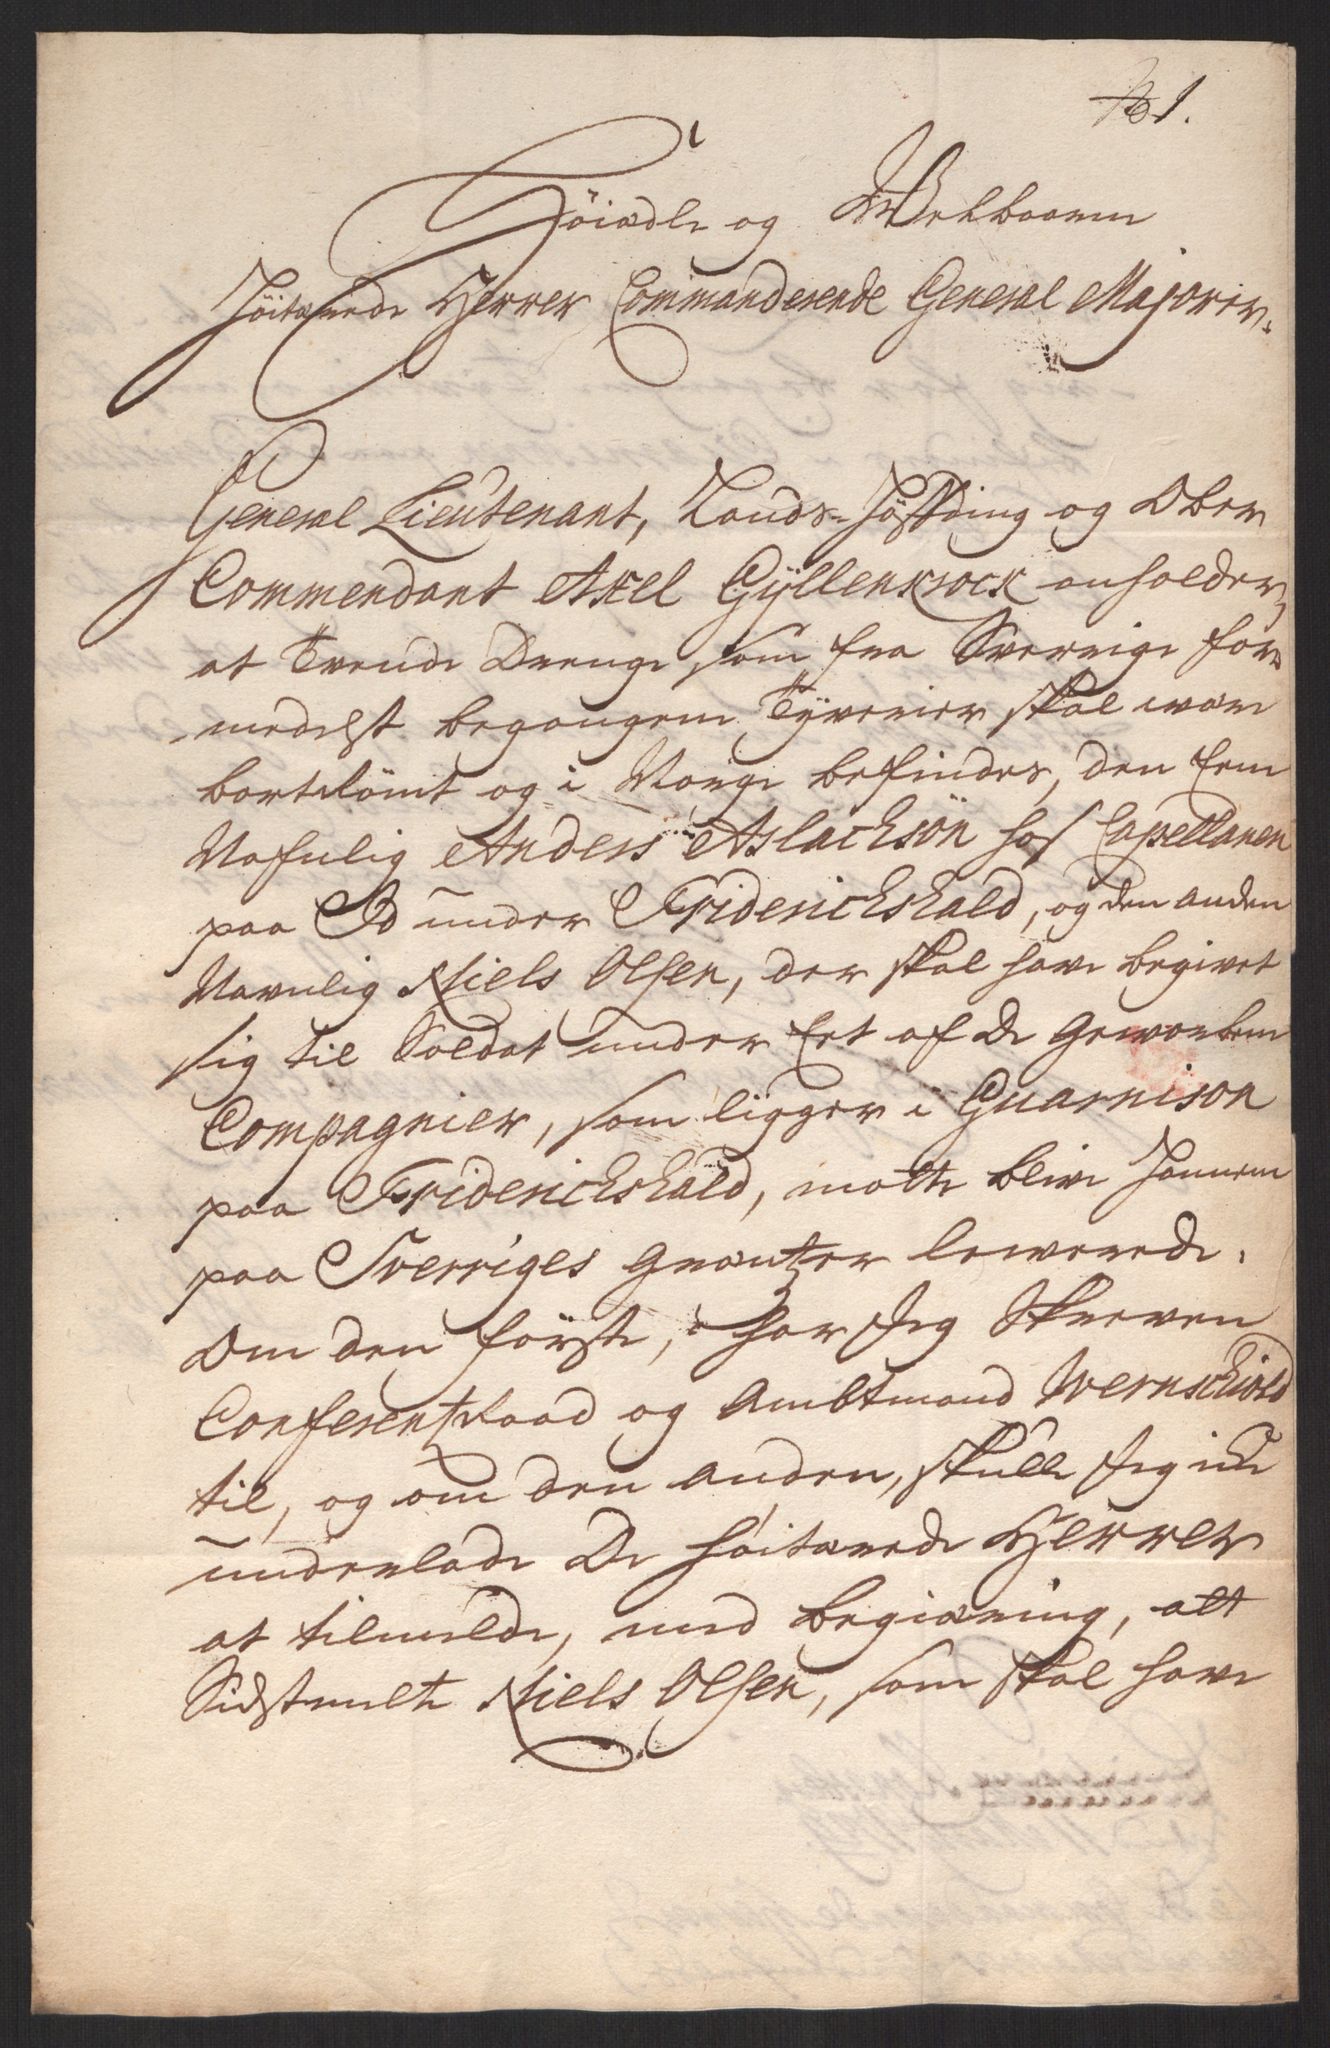 No 1.
Höiædle og Welbaarne
Höitærede Herrer Commanderende General Majorer.
General Lieutenant, Lands-Höffding og Ober
Commendant Axel Gÿllenkrock anholder,
at Tvende Drenge som fra Sverrige for-
medelst begangene Tÿverier skal være
bortrömt og i Norge befindes, den Eene
Nafnlig Anders Aslachsön hos Capellanen
paa Id under Friderichshald, og den anden
Navnlig Niels Olsen, der skal have begivet
sig til Soldat under Eet af De Geworbene
Compagnier, som ligger i Guarnison
paa Friderichshald, motte blive Hannem
paa Sverriges Grentzer leverede.
Om den förste, har Jeg Skreven
Conferentz Raad og Ambtmand Wernschiold
til, og om den anden, skulle Jeg icke
underlade De höitærede Herrer
at tilmelde, med begiæring, att
Sidstmelte Niels Olsen, som skal have